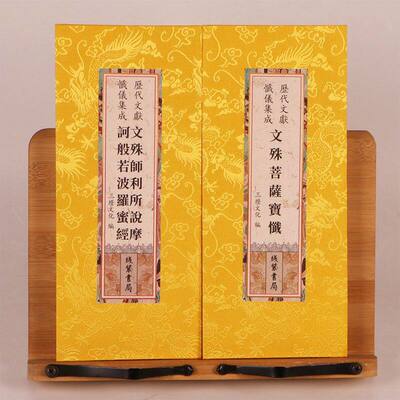 歷代文獻
懺儀集成
文殊師利所說摩
訶般若波羅蜜經
三壇文化 編
线装書局
歷代文獻
懺儀集成
文殊菩薩寶懺
三壇文化 編
线装書局